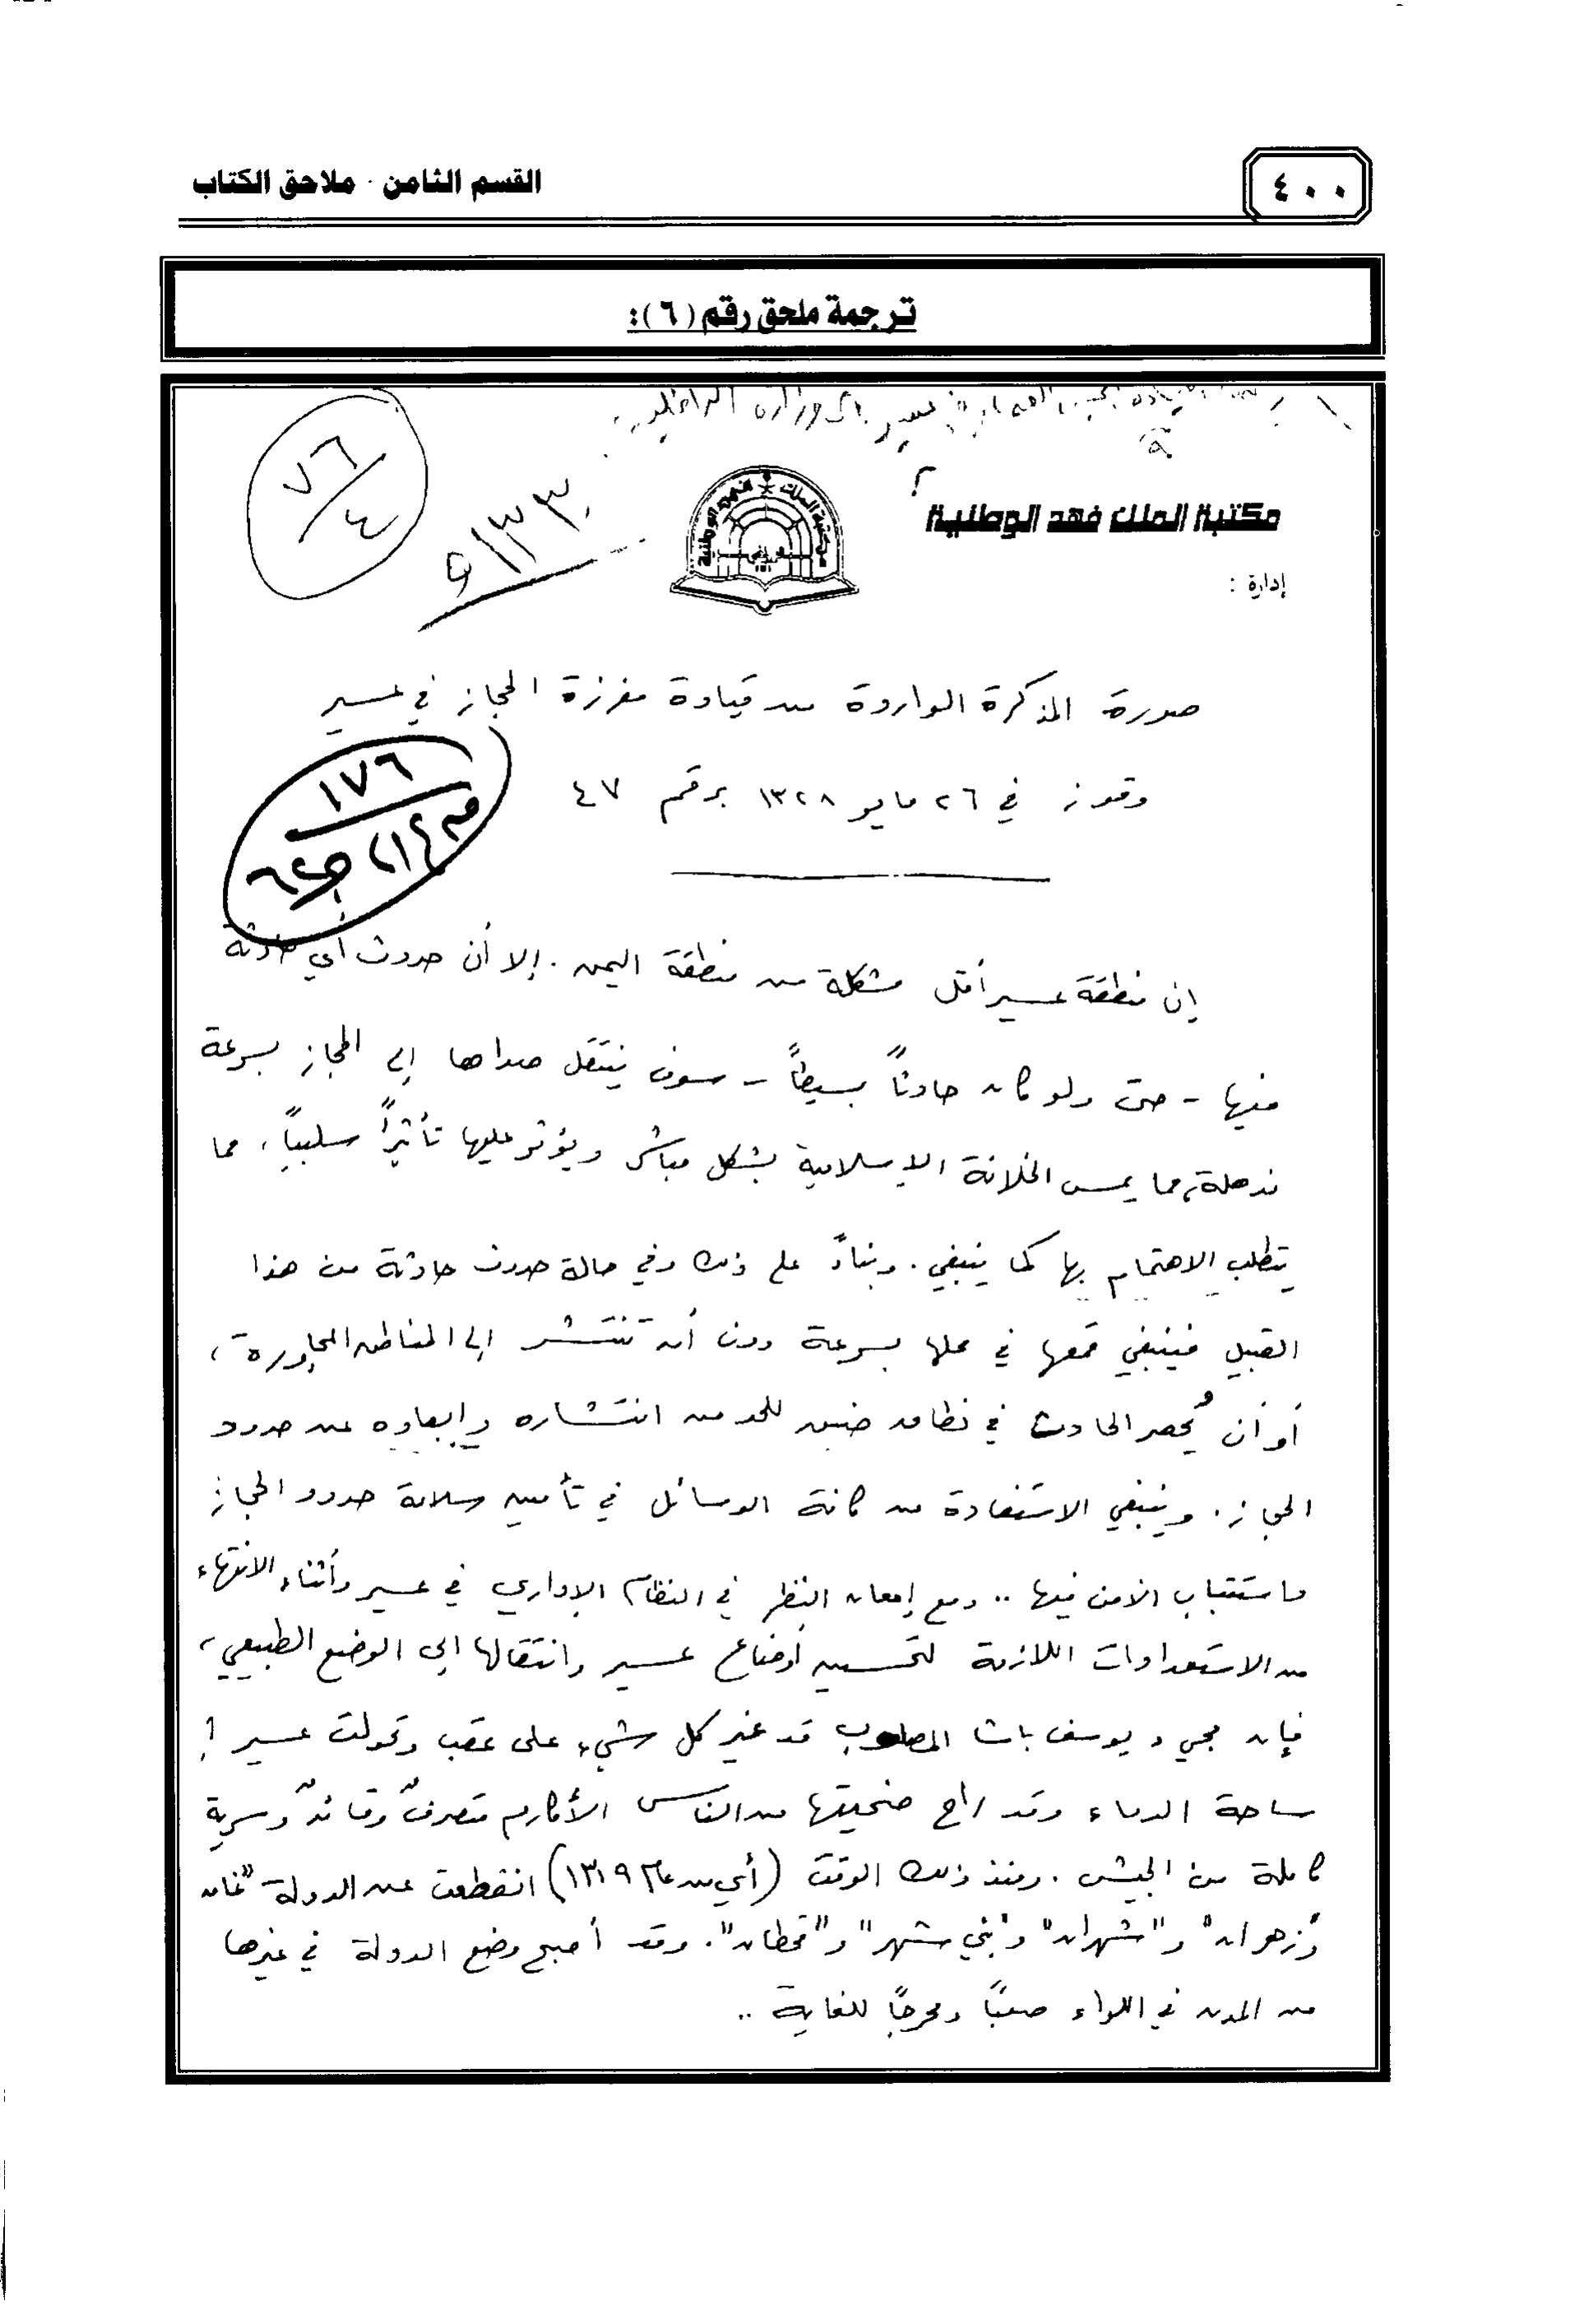 ٤٠٠
القسم الثامن - ملاحق الكتاب
ترجمة ملحق رقم (٦):
٧٦/٤
مكتبة الملك فهد الوطنية
إدارة :
صورة المذكرة الواردة من قيادة مفرزة الحجاز في عسير
وقوز في ٢٦ مايو ١٣٢٨ برقم ٤٧
١٧٦
إن منطقة عسير أقل مشكلة من منطقة اليمن . إلا أن حدوث أي حادثة
فيها - حتى ولو كان حادثاً بسيطاً - سوف ينتقل صداها إلى الحجاز بسرعة
مذهلة، مما يمس الخلافة الإسلامية بشكل مباشر ويؤثر عليها تأثيراً سلبياً، مما
يتطلب الاهتمام بها كما ينبغي . وبناءً على ذلك وفي حالة حدوث حادثة من هذا
القبيل فينبغي قمعها في محلها بسرعة دون أن تنتشر إلى المناطق المجاورة ،
أو أن يُحصر الحادث في نطاق ضيق للحد من انتشاره وإبعاده عن حدود
الحجاز . وينبغي الاستفادة من كافة الوسائل في تأمين سلامة حدود الحجاز
واستتباب الأمن فيها .. ومع إمعان النظر في النظام الإداري في عسير وأثناء الانتهاء
من الاستعدادات اللازمة لتحسين أوضاع عسير وانتقالها إلى الوضع الطبيعي ،
فإن مجيء يوسف باشا قد غير كل شيء على عقب وتحولت عسير إلى
ساحة الدماء وقد راح ضحيتها من الناس الأكارم متصرفٌ وقائدٌ وسرية
كاملة من الجيش . ومنذ ذلك الوقت (أي من عام ١٣١٩) انقطعت عن الدولة "غامد
وزهران" و"شهران" و"بني شهر" و"قحطان" . وقد أصبح وضع الدولة في غيرها
من المدن في اللواء صعباً ومحرجاً للغاية ..